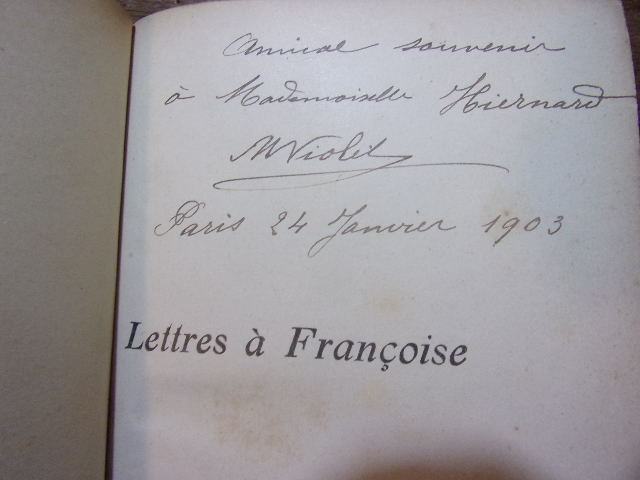 Amical souvenir
à Mademoiselle Hiernard
MViolet
Paris 24 Janvier 1903
Lettres à Françoise